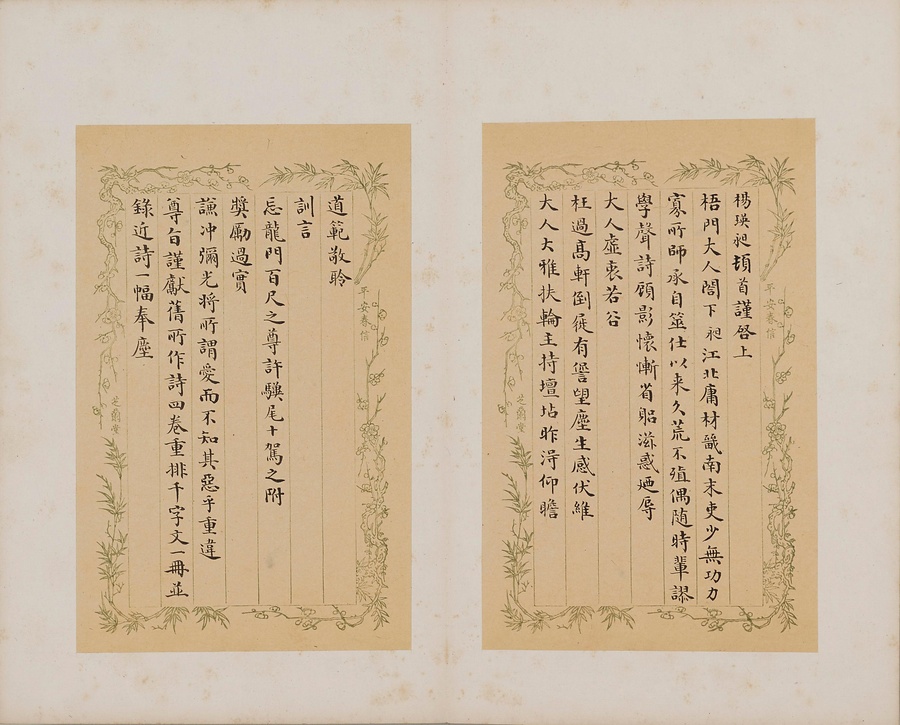 楊瑛昶頓首謹啓上
梧門大人閣下昶江北庸材畿南末吏少無功力
寡所師承自筮仕以来久荒不殖偶随時輩謬
學聲詩顧影懷慚省躬滋惑廼辱
大人虛衷若谷
枉過高軒倒屣有誉望塵生感伏維
大人大雅扶輪主持壇坫昨淂仰瞻
平安春信
芝蘭堂
道範敬聆
訓言
忘龍門百尺之尊許驥尾十駕之附
奬勵過實
謙冲彌光将所謂愛而不知其惡乎重違
尊旨謹獻舊所作詩四卷重排千字文一冊並
錄近詩一幅奉塵
平安春信
芝蘭堂